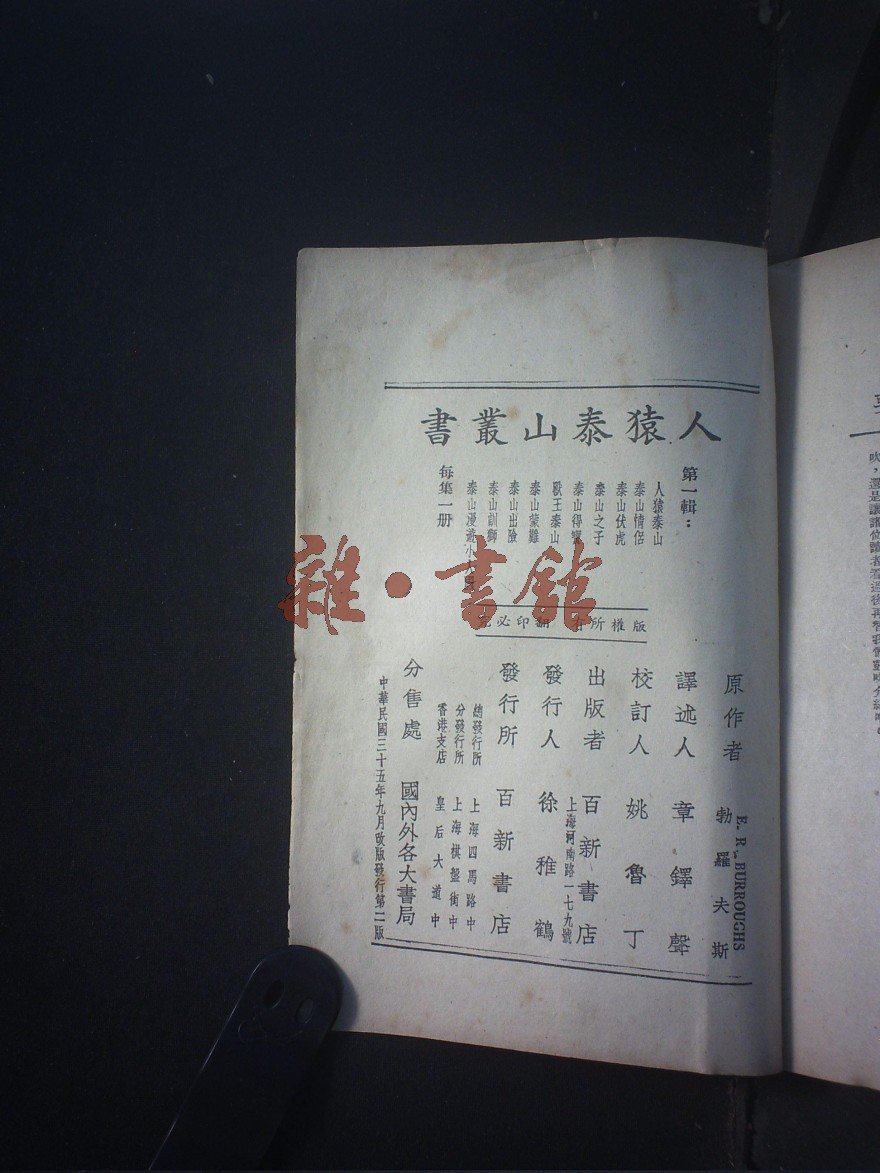 人猿泰山叢書
第一輯：
人猿泰山
泰山情侶
泰山伏虎
泰山之子
泰山得寶
獸王泰山
泰山蒙難
泰山出險
泰山訓獅
泰山漫遊小
每集一册
版權所有 翻印必
原作者 E. R. BURROUGHS 勃羅夫斯
譯述人 章鐸聲
校訂人 姚魯丁
出版者 百新書店
上海河南路一七九號
發行人 徐稚鶴
發行所 百新書店
總發行所 上海四馬路中
分發行所 上海棋盤街中
香港支店 皇后大道中
分售處 國內外各大書局
中華民國三十五年九月改版發行第二版
雜·書館